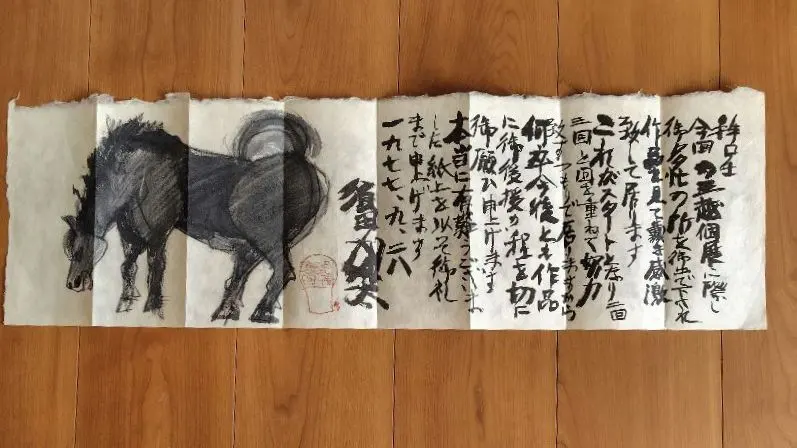 拝啓
今回の三越個展に際し
御多忙の所を御出で下され
作品を見て戴き感激
致して居ります
これがスタートとなり二回
三回と回を重ねて努力
致すつもりで居りますから
何卒今後とも作品
に御後援の程を切に
御願ひ申上げます
本当に有難うございま
した 紙上を以って御礼
まで申上げます
一九七七、九、二八
須田剋太